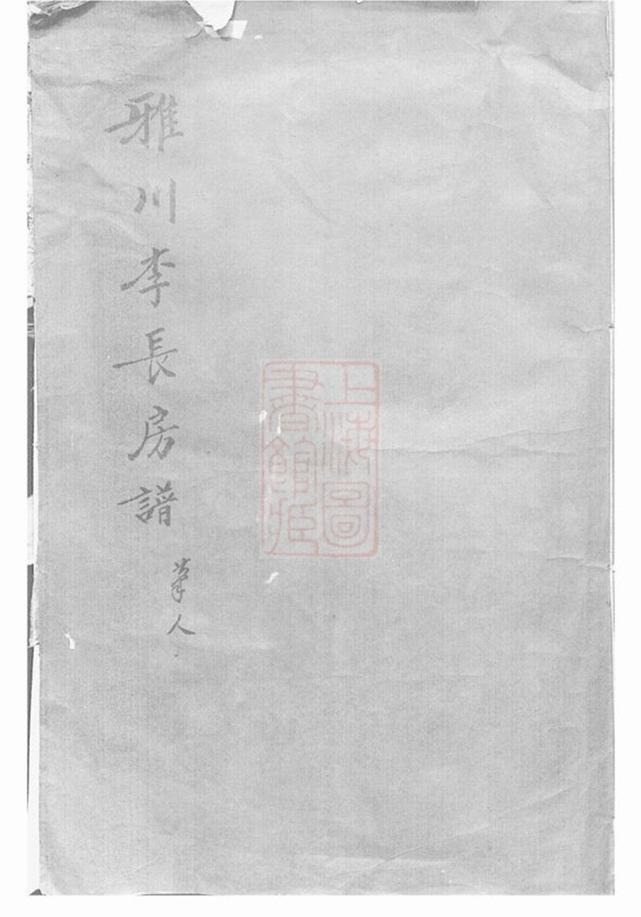 雅川李長房譜
人
上海圖
書館藏